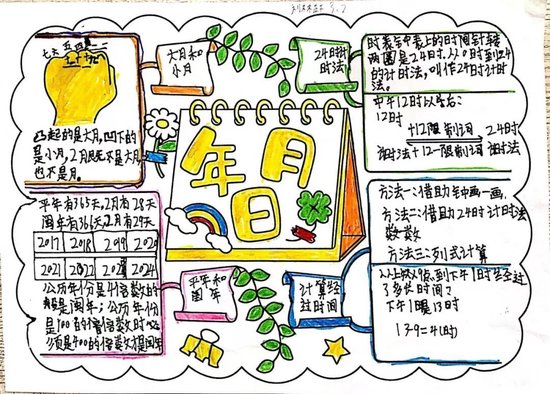 3.2
七 六 五 四 三 二 一
凸起的是大月,凹下的
是小月,2月既不是大月
也不是小月。
大月和
小月
24时计
时法
时表
两圈是24时。从0时到24
的计时法,叫作24时计时
法。
中午12时以后:
12时
+12限制词
24时
计时法+12-限制词
计时法
年 月 日
平年有365天,2月有28天
闰年有366天,2月有29天
2017 2018 2019 2020
2021 2022 2023 2024
公历年份是4的倍数的
是闰年;公历年份
是100的倍数时,必
须是400的倍数才是闰年
平年和
闰年
计算经
过时间
方法一:借助钟面一画
方法二:借助24时计时法
数数
方法三:列式计算
从上午9点到下午1时经过
了多长时间?
下午1时是13时
13-9=4(时)